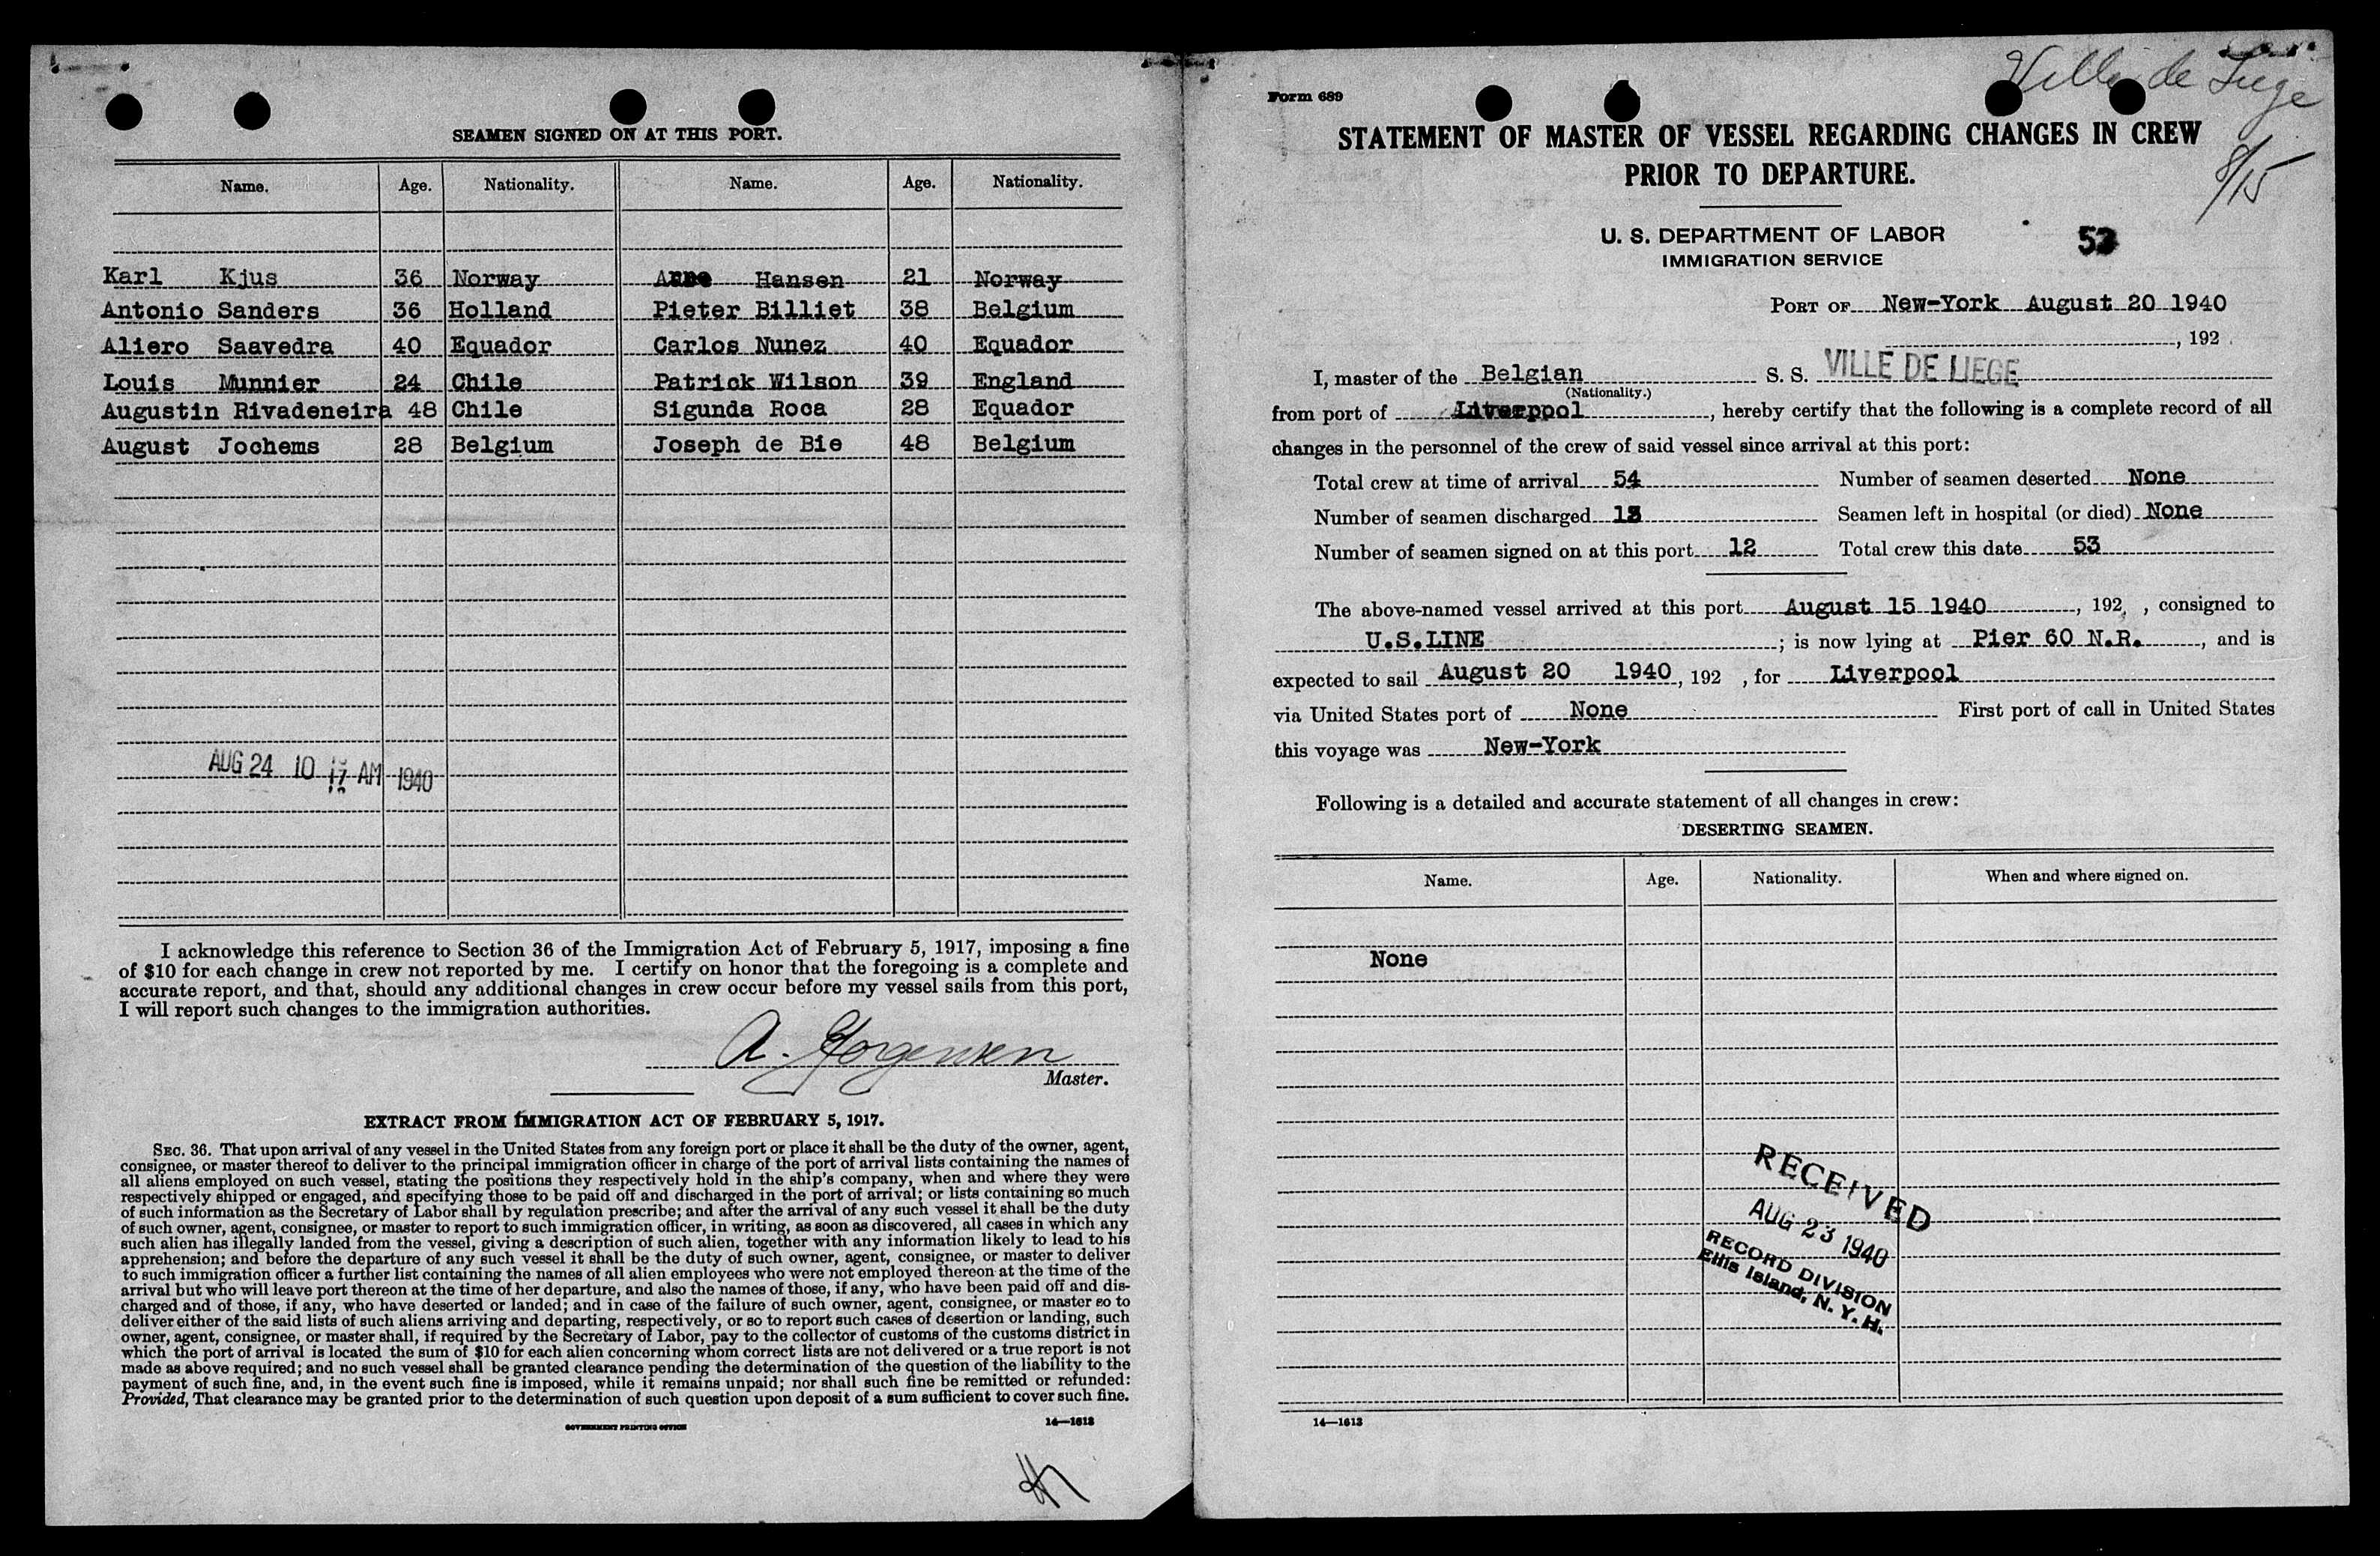 SEAMEN SIGNED ON AT THIS PORT.
Name. Age. Nationality. Name. Age. Nationality.
Karl Kjus 36 Norway Hansen 21 Norway
Antonio Sanders 36 Holland Pieter Billiet 38 Belgium
Aliero Saavedra 40 Equador Carlos Nunez 40 Equador
Louis Munnier 24 Chile Patrick Wilson 39 England
Augustin Rivadeneira 48 Chile Sigunda Roca 28 Equador
August Jochems 28 Belgium Joseph de Bie 48 Belgium
AUG 24 10 17 AM 1940
I acknowledge this reference to Section 36 of the Immigration Act of February 5, 1917, imposing a fine
of $10 for each change in crew not reported by me. I certify on honor that the foregoing is a complete and
accurate report, and that, should any additional changes in crew occur before my vessel sails from this port,
I will report such changes to the immigration authorities.
A. Jorgensen
Master.
EXTRACT FROM IMMIGRATION ACT OF FEBRUARY 5, 1917.
SEC. 36. That upon arrival of any vessel in the United States from any foreign port or place it shall be the duty of the owner, agent,
consignee, or master thereof to deliver to the principal immigration officer in charge of the port of arrival lists containing the names of
all aliens employed on such vessel, stating the positions they respectively hold in the ship's company, when and where they were
respectively shipped or engaged, and specifying those to be paid off and discharged in the port of arrival; or lists containing so much
of such information as the Secretary of Labor shall by regulation prescribe; and after the arrival of any such vessel it shall be the duty
of such owner, agent, consignee, or master to report to such immigration officer, in writing, as soon as discovered, all cases in which any
such alien has illegally landed from the vessel, giving a description of such alien, together with any information likely to lead to his
apprehension; and before the departure of any such vessel it shall be the duty of such owner, agent, consignee, or master to deliver
to such immigration officer a further list containing the names of all alien employees who were not employed thereon at the time of the
arrival but who will leave port thereon at the time of her departure, and also the names of those, if any, who have been paid off and dis-
charged and of those, if any, who have deserted or landed; and in case of the failure of such owner, agent, consignee, or master so to
deliver either of the said lists of such aliens arriving and departing, respectively, or so to report such cases of desertion or landing, such
owner, agent, consignee, or master shall, if required by the Secretary of Labor, pay to the collector of customs of the customs district in
which the port of arrival is located the sum of $10 for each alien concerning whom correct lists are not delivered or a true report is not
made as above required; and no such vessel shall be granted clearance pending the determination of the question of the liability to the
payment of such fine, and, in the event such fine is imposed, while it remains unpaid; nor shall such fine be remitted or refunded:
Provided, That clearance may be granted prior to the determination of such question upon deposit of a sum sufficient to cover such fine.
GOVERNMENT PRINTING OFFICE 14—1613
Ville de Liege
8/15
Form 689
STATEMENT OF MASTER OF VESSEL REGARDING CHANGES IN CREW
PRIOR TO DEPARTURE.
U. S. DEPARTMENT OF LABOR
IMMIGRATION SERVICE
53
PORT OF New-York August 20 1940
, 192 .
I, master of the Belgian S. S. VILLE DE LIEGE
(Nationality.)
from port of Liverpool, hereby certify that the following is a complete record of all
changes in the personnel of the crew of said vessel since arrival at this port:
Total crew at time of arrival 54 Number of seamen deserted None
Number of seamen discharged 13 Seamen left in hospital (or died) None
Number of seamen signed on at this port 12 Total crew this date 53
The above-named vessel arrived at this port August 15 1940, 192 , consigned to
U.S.LINE; is now lying at Pier 60 N.R., and is
expected to sail August 20 1940, 192 , for Liverpool
via United States port of None First port of call in United States
this voyage was New-York
Following is a detailed and accurate statement of all changes in crew:
DESERTING SEAMEN.
Name. Age. Nationality. When and where signed on.
None
RECEIVED
AUG 23 1940
RECORD DIVISION
Ellis Island, N. Y. H.
14—1613